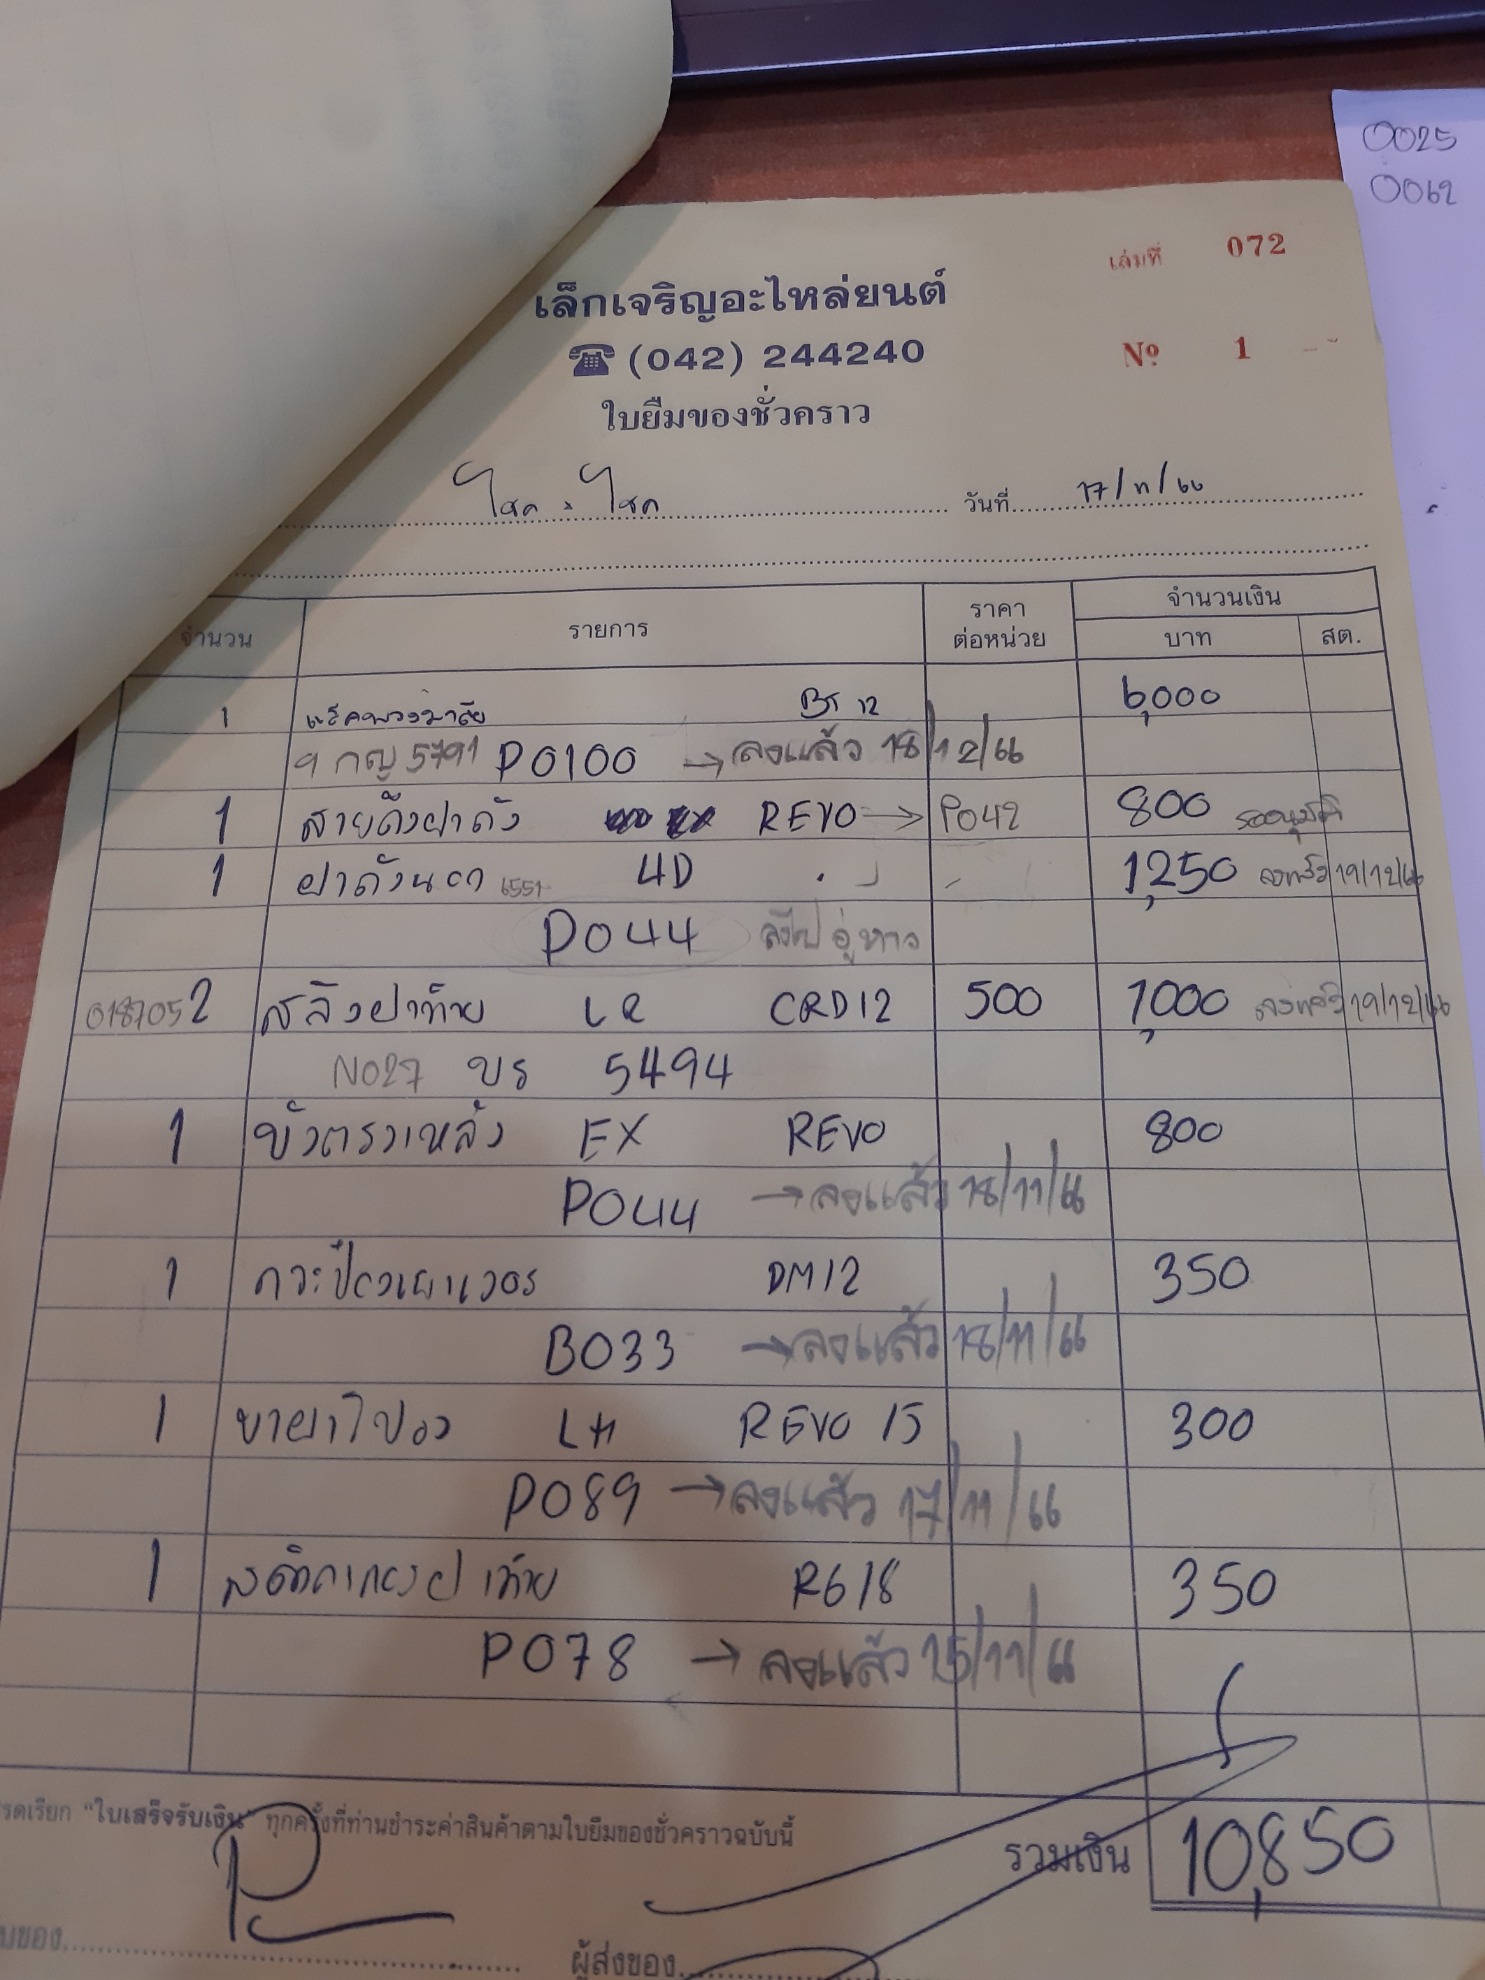 0025
0062
เล่มที่ 072
เล็กเจริญอะไหล่ยนต์
☎ (042) 244240
Nº 1
ใบยืมของชั่วคราว
โชค : โชค วันที่ 17/11/66
จำนวน รายการ ราคาต่อหน่วย จำนวนเงิน
บาท สต.
1 แร็คพวงมาลัย BT 12 6,000
กญ 5791 P0100 → ลงแล้ว 18/12/66
1 สายดึงฝาถัง REVO → P042 800 รออนุมัติ
1 ฝาถังนอก 4D 1,250 ลงแล้ว 19/12/66
P044 ส่งไป อู่หาว
2 สลิงฝาท้าย LR CRD12 500 1,000 ลงแล้ว 19/12/66
N027 บร 5494
1 EX REVO 800
P044 → ลงแล้ว 18/11/66
1 DM12 350
B033 → ลงแล้ว 18/11/66
1 ขายาไฟ LH REVO 15 300
P089 → ลงแล้ว 17/11/66
1 350
P078 → ลงแล้ว 15/11/66
รดเรียก "ใบเสร็จรับเงิน" ทุกครั้งที่ท่านชำระค่าสินค้าตามใบยืมของชั่วคราวฉบับนี้
รวมเงิน 10,850
บของ ผู้ส่งของ